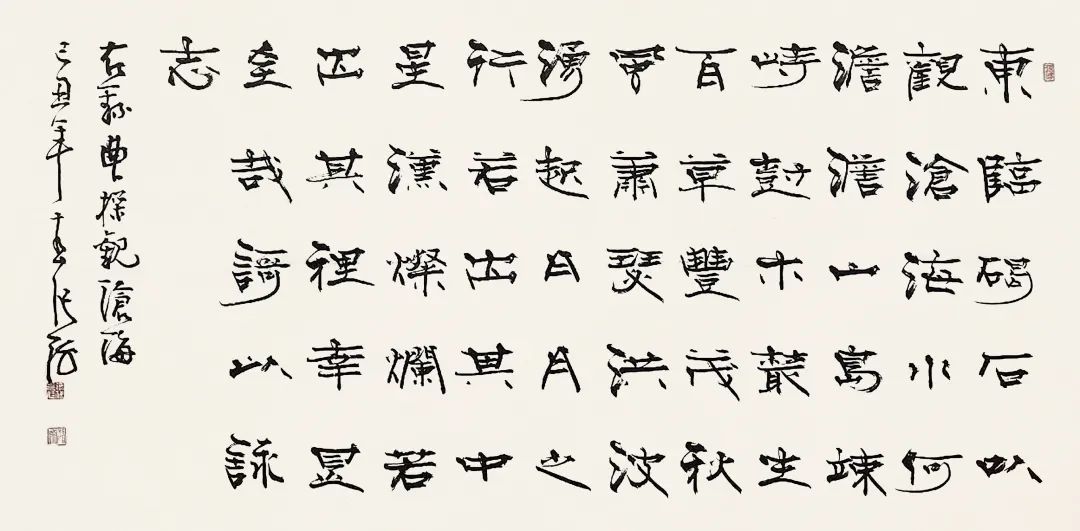 東臨碣石以
觀滄海水何
澹澹山島竦
峙尌木叢生
百草豐茂秋
風蕭瑟洪波
湧起日月之
行若出其中
星漢燦爛若
出其裡幸甚
至哉謌以詠
志
右錄曹操觀滄海
己丑年